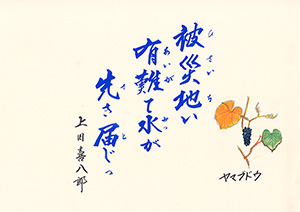 被災地い
ひさいち
有難て水が
あいが みっ
先き届じっ
さ と
上田喜八郎
ヤマブドウ